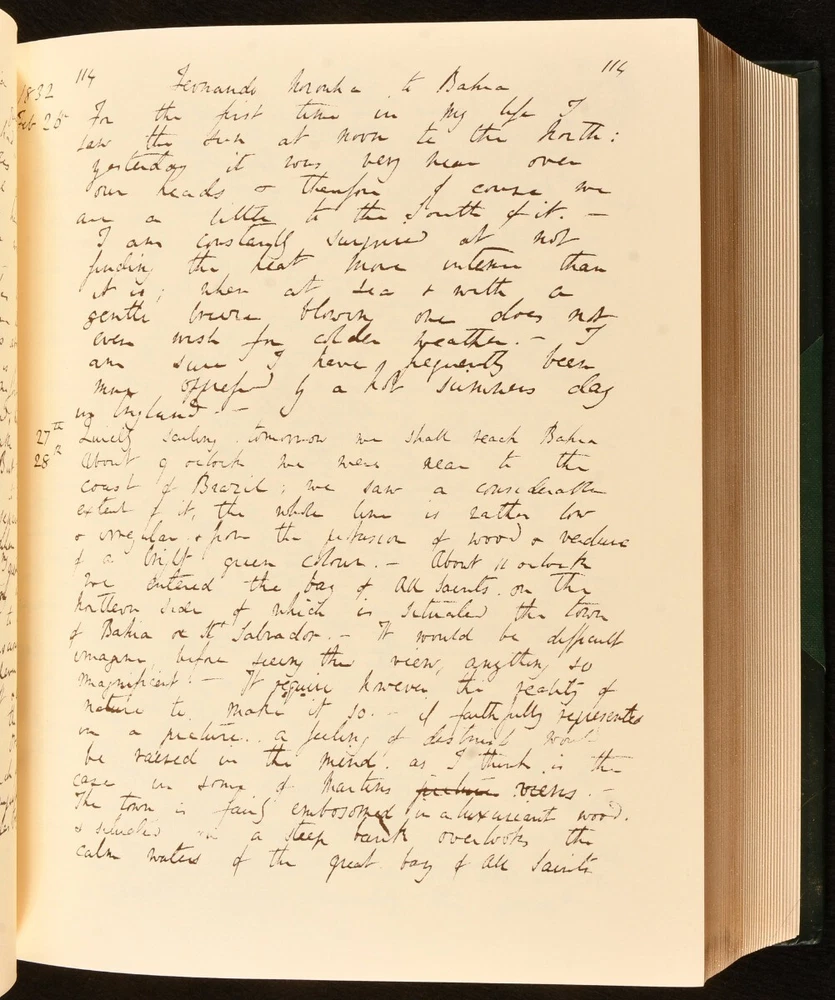 114 Fernando Noronha to Bahia 114
1832
Feb 26th For the first time in my life I
saw the sun at noon to the North:
yesterday it was very near over
our heads & therefore of course we
are a little to the South of it. —
I am constantly surprised at not
finding the heat more intense than
it is; when at sea & with a
gentle breeze blowing one does not
even wish for colder weather. — I
am sure I have frequently been
more oppressed by a hot summers day
in England. —
27th Quietly sailing. tomorrow we shall reach Bahia
28th About 9 oclock we were near to the
coast of Brazil; we saw a considerable
extent of it, the whole line is rather low
& irregular & from the profusion of wood & verdure
of a bright green colour. — About 11 oclock
we entered the bay of All Saints, on the
Northern side of which is situated the town
of Bahia or St Salvador. — It would be difficult
imagine, before seeing the view, anything so
magnificent. — It requires however the reality of
nature to make it so. — if faithfully represented
in a picture, a feeling of distrust would
be raised in the mind, as I think is the
case in some of Martins picture views. —
The town is fairly embosomed in a luxuriant wood.
& situated on a steep bank overlooks the
calm waters of the great bay of All Saints